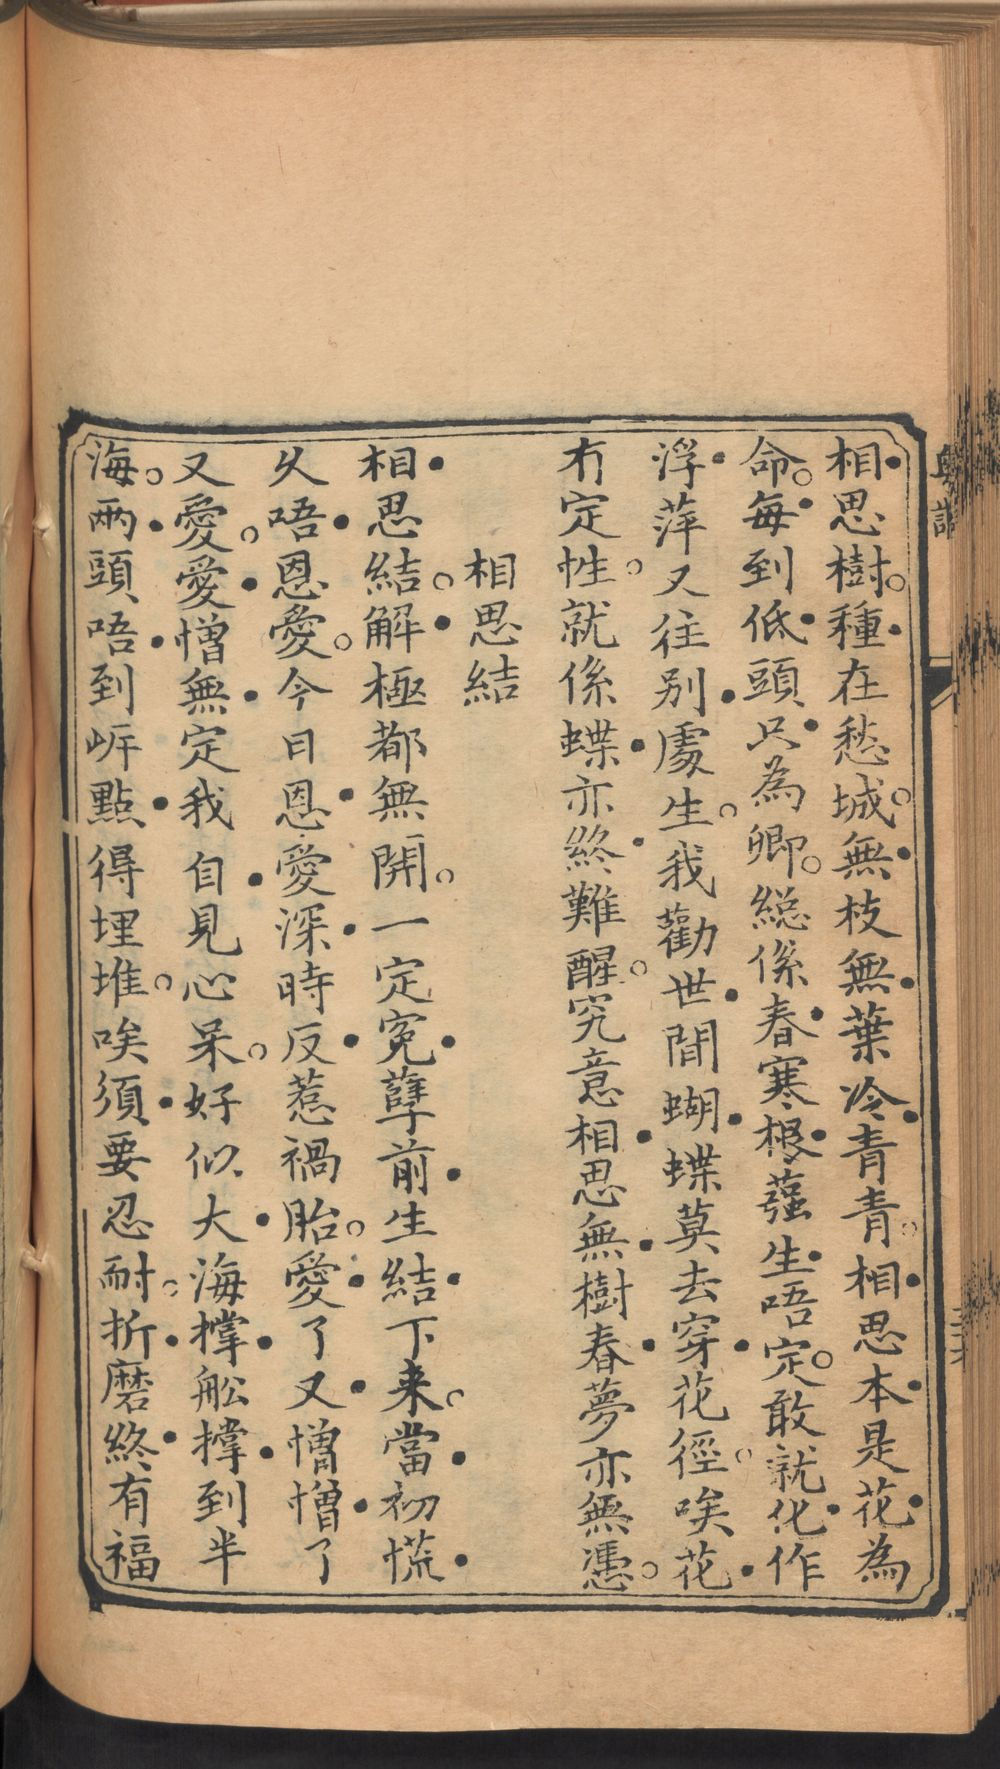 相思樹。種在愁城。無枝無葉冷青青。相思本是花為
命。每到低頭只為卿。縂係春寒根蕴生唔定。敢就化作
浮萍又往別處生。我勸世間蝴蝶莫去穿花徑。唉花
冇定性。就係蝶亦終難醒。究意相思無樹春夢亦無憑。
相思結
相思結。解極都無開。一定寃孽前生結下来。當初慌
乆唔恩愛。今日恩愛深時反惹禍胎。愛了又憎憎了
又愛。愛憎無定我自見心呆。好似大海撑船撑到半
海。兩頭唔到岍點得埋堆。唉須要忍耐。折磨終有福